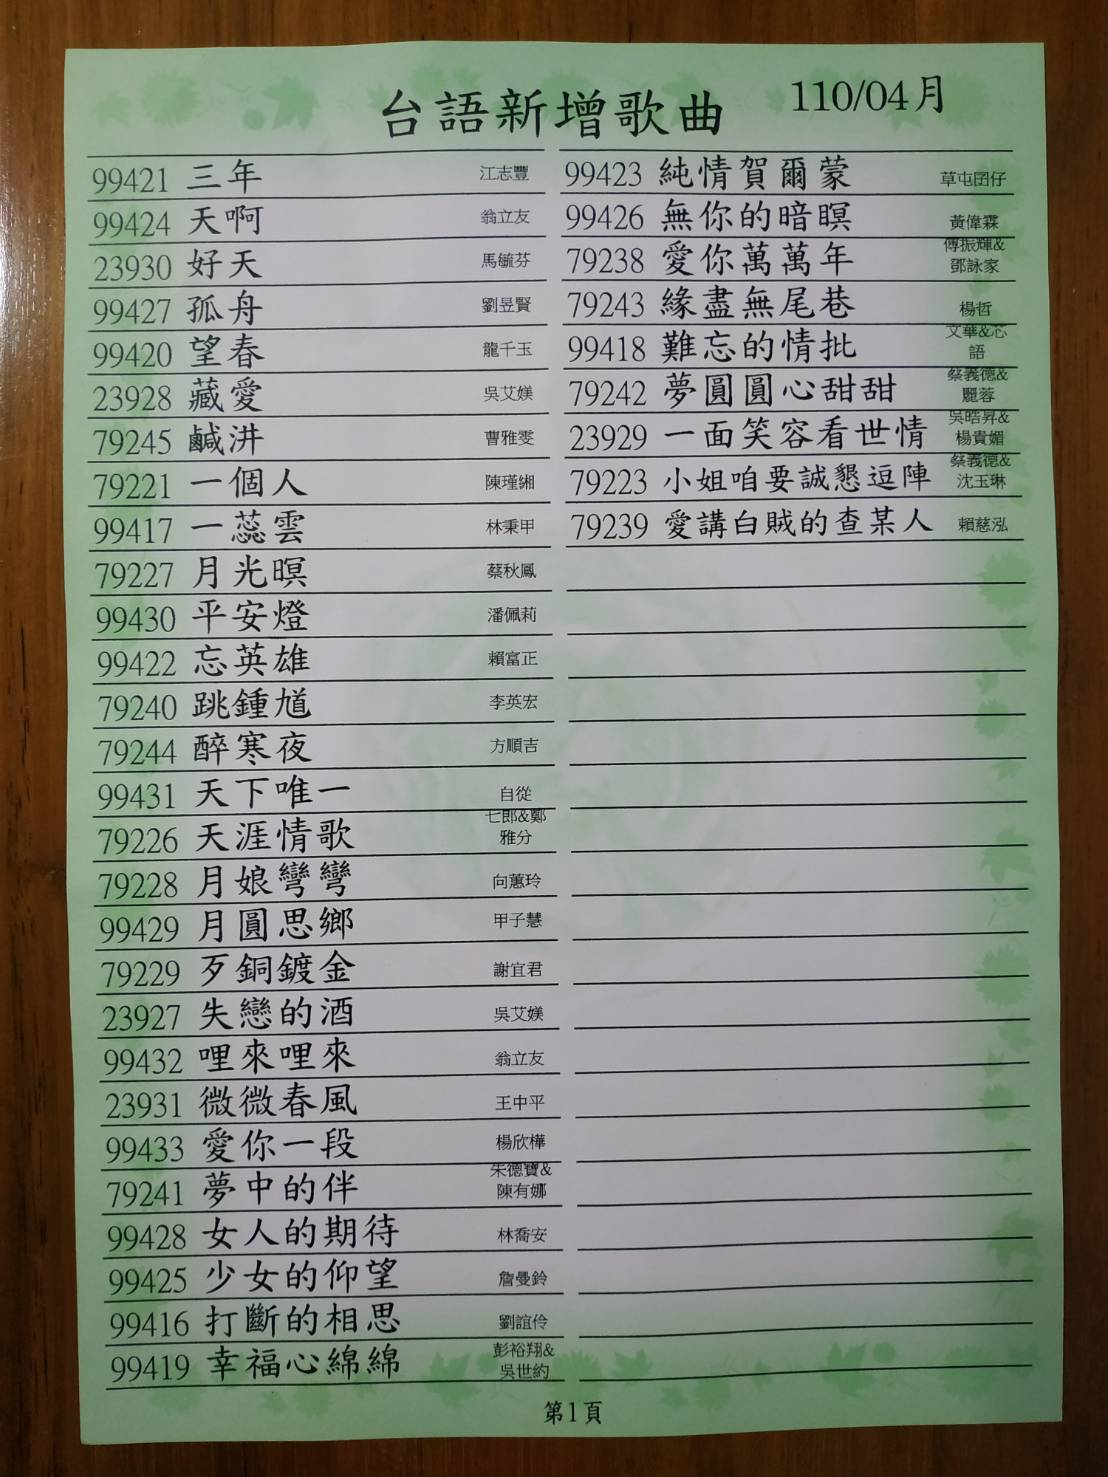 台語新增歌曲 110/04月
99421 三年 江志豐
99424 天啊 翁立友
23930 好天 馬毓芬
99427 孤舟 劉昱賢
99420 望春 龍千玉
23928 藏愛 吳艾媄
79245 鹹汫 曹雅雯
79221 一個人 陳瑾緗
99417 一蕊雲 林秉甲
79227 月光暝 蔡秋鳳
99430 平安燈 潘佩莉
99422 忘英雄 賴富正
79240 跳鍾馗 李英宏
79244 醉寒夜 方順吉
99431 天下唯一 自從
79226 天涯情歌 七郎&鄭
雅分
79228 月娘彎彎 向蕙玲
99429 月圓思鄉 甲子慧
79229 歹銅鍍金 謝宜君
23927 失戀的酒 吳艾媄
99432 哩來哩來 翁立友
23931 微微春風 王中平
99433 愛你一段 楊欣樺
79241 夢中的伴 朱德寶&
陳有娜
99428 女人的期待 林喬安
99425 少女的仰望 詹曼鈴
99416 打斷的相思 劉誼伶
99419 幸福心綿綿 彭裕翔&
吳世約
99423 純情賀爾蒙 草屯囝仔
99426 無你的暗暝 黃偉霖
79238 愛你萬萬年 傅振輝&
鄧詠家
79243 緣盡無尾巷 楊哲
99418 難忘的情批 文華&芯
語
79242 夢圓圓心甜甜 蔡義德&
麗蓉
23929 一面笑容看世情 吳晧昇&
楊貴媚
79223 小姐咱要誠懇逗陣 蔡義德&
沈玉琳
79239 愛講白賊的查某人 賴慈泓
第1頁